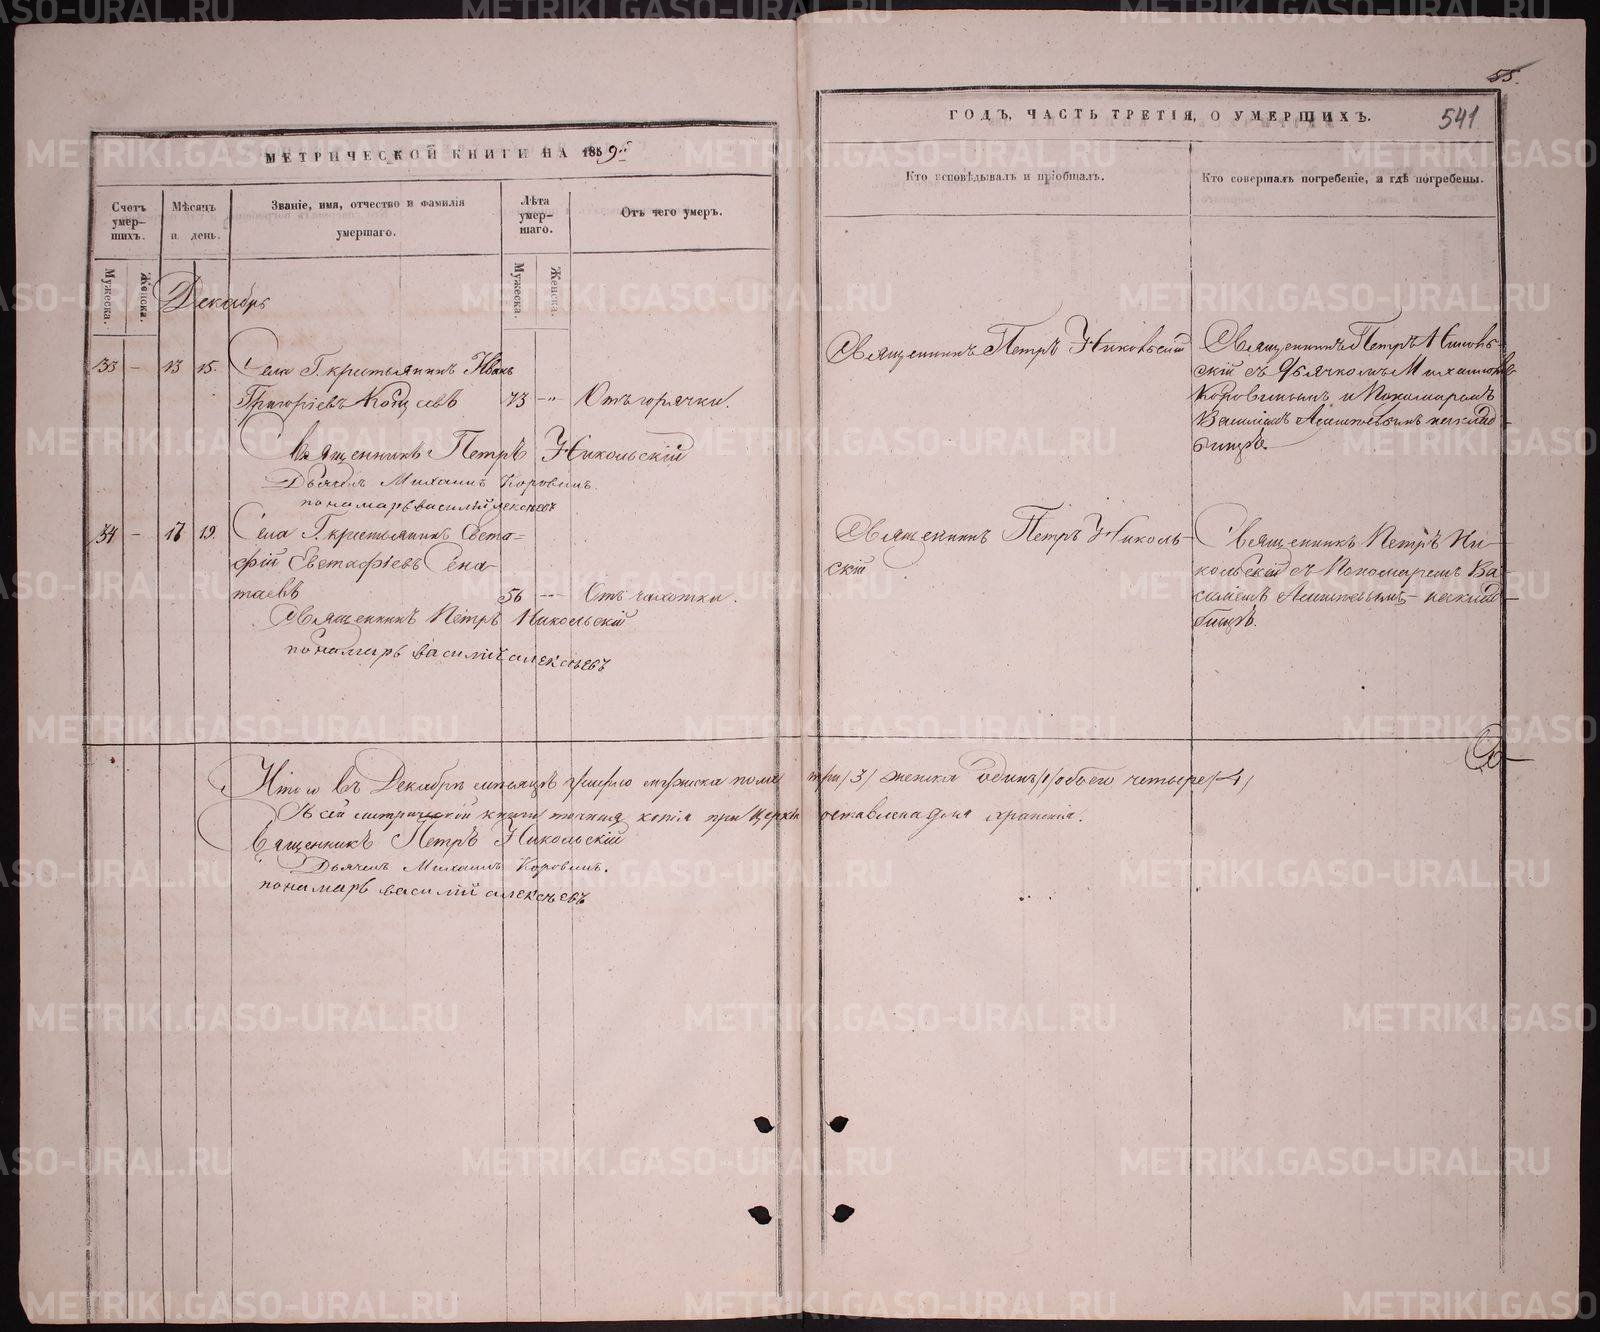 55.
541
МЕТРИЧЕСКОЙ КНИГИ НА 1859й
ГОДЪ, ЧАСТЬ ТРЕТІЯ, О УМЕРШИХЪ.
Счетъ умерших.
Мѣсяцъ и день.
Званіе, имя, отчество и фамилія умершаго.
Лѣта умершаго.
Отъ чего умеръ.
Кто исповѣдывалъ и пріобщалъ.
Кто совершалъ погребеніе, и гдѣ погребены.
Мужеска.
Женска.
Мужеска.
Женска.
Декабрь
33 — 13 15. Села Г. крестьянинъ Иванъ
Григоріевъ 73 -„- Отъ горячки.
Священникъ Петръ Никольскій
Священникъ Петръ Николь-
скій съ Дьячкомъ Михаиломъ
Коровинымъ и Пономаремъ
Василіемъ на клад-
бищѣ.
Священникъ Петръ Никольскій
Дьячекъ Михаилъ Коровинъ.
пономарь василій алексѣевъ
34 — 17 19. Села Г. крестьянинъ Евста-
фій Евстафіевъ Сена-
таевъ 56 -„- Отъ чахотки.
Священникъ Петръ Николь-
скій
Священникъ Петръ Ни-
кольскій съ Пономаремъ Ва-
силіемъ на клад-
бищѣ.
Священникъ Петръ Никольскій
пономарь василій алексѣевъ
Итого въ Декабрѣ мѣсяцѣ умерло мужеска пола три /3/ женска одинъ /1/ обоего четыре /4/
Съ сей метрической книги точная копія при Церкви оставлена для храненія.
Священникъ Петръ Никольскій
Дьячекъ Михаилъ Коровинъ.
пономарь василій алексѣевъ
METRIKI.GASO-URAL.RU